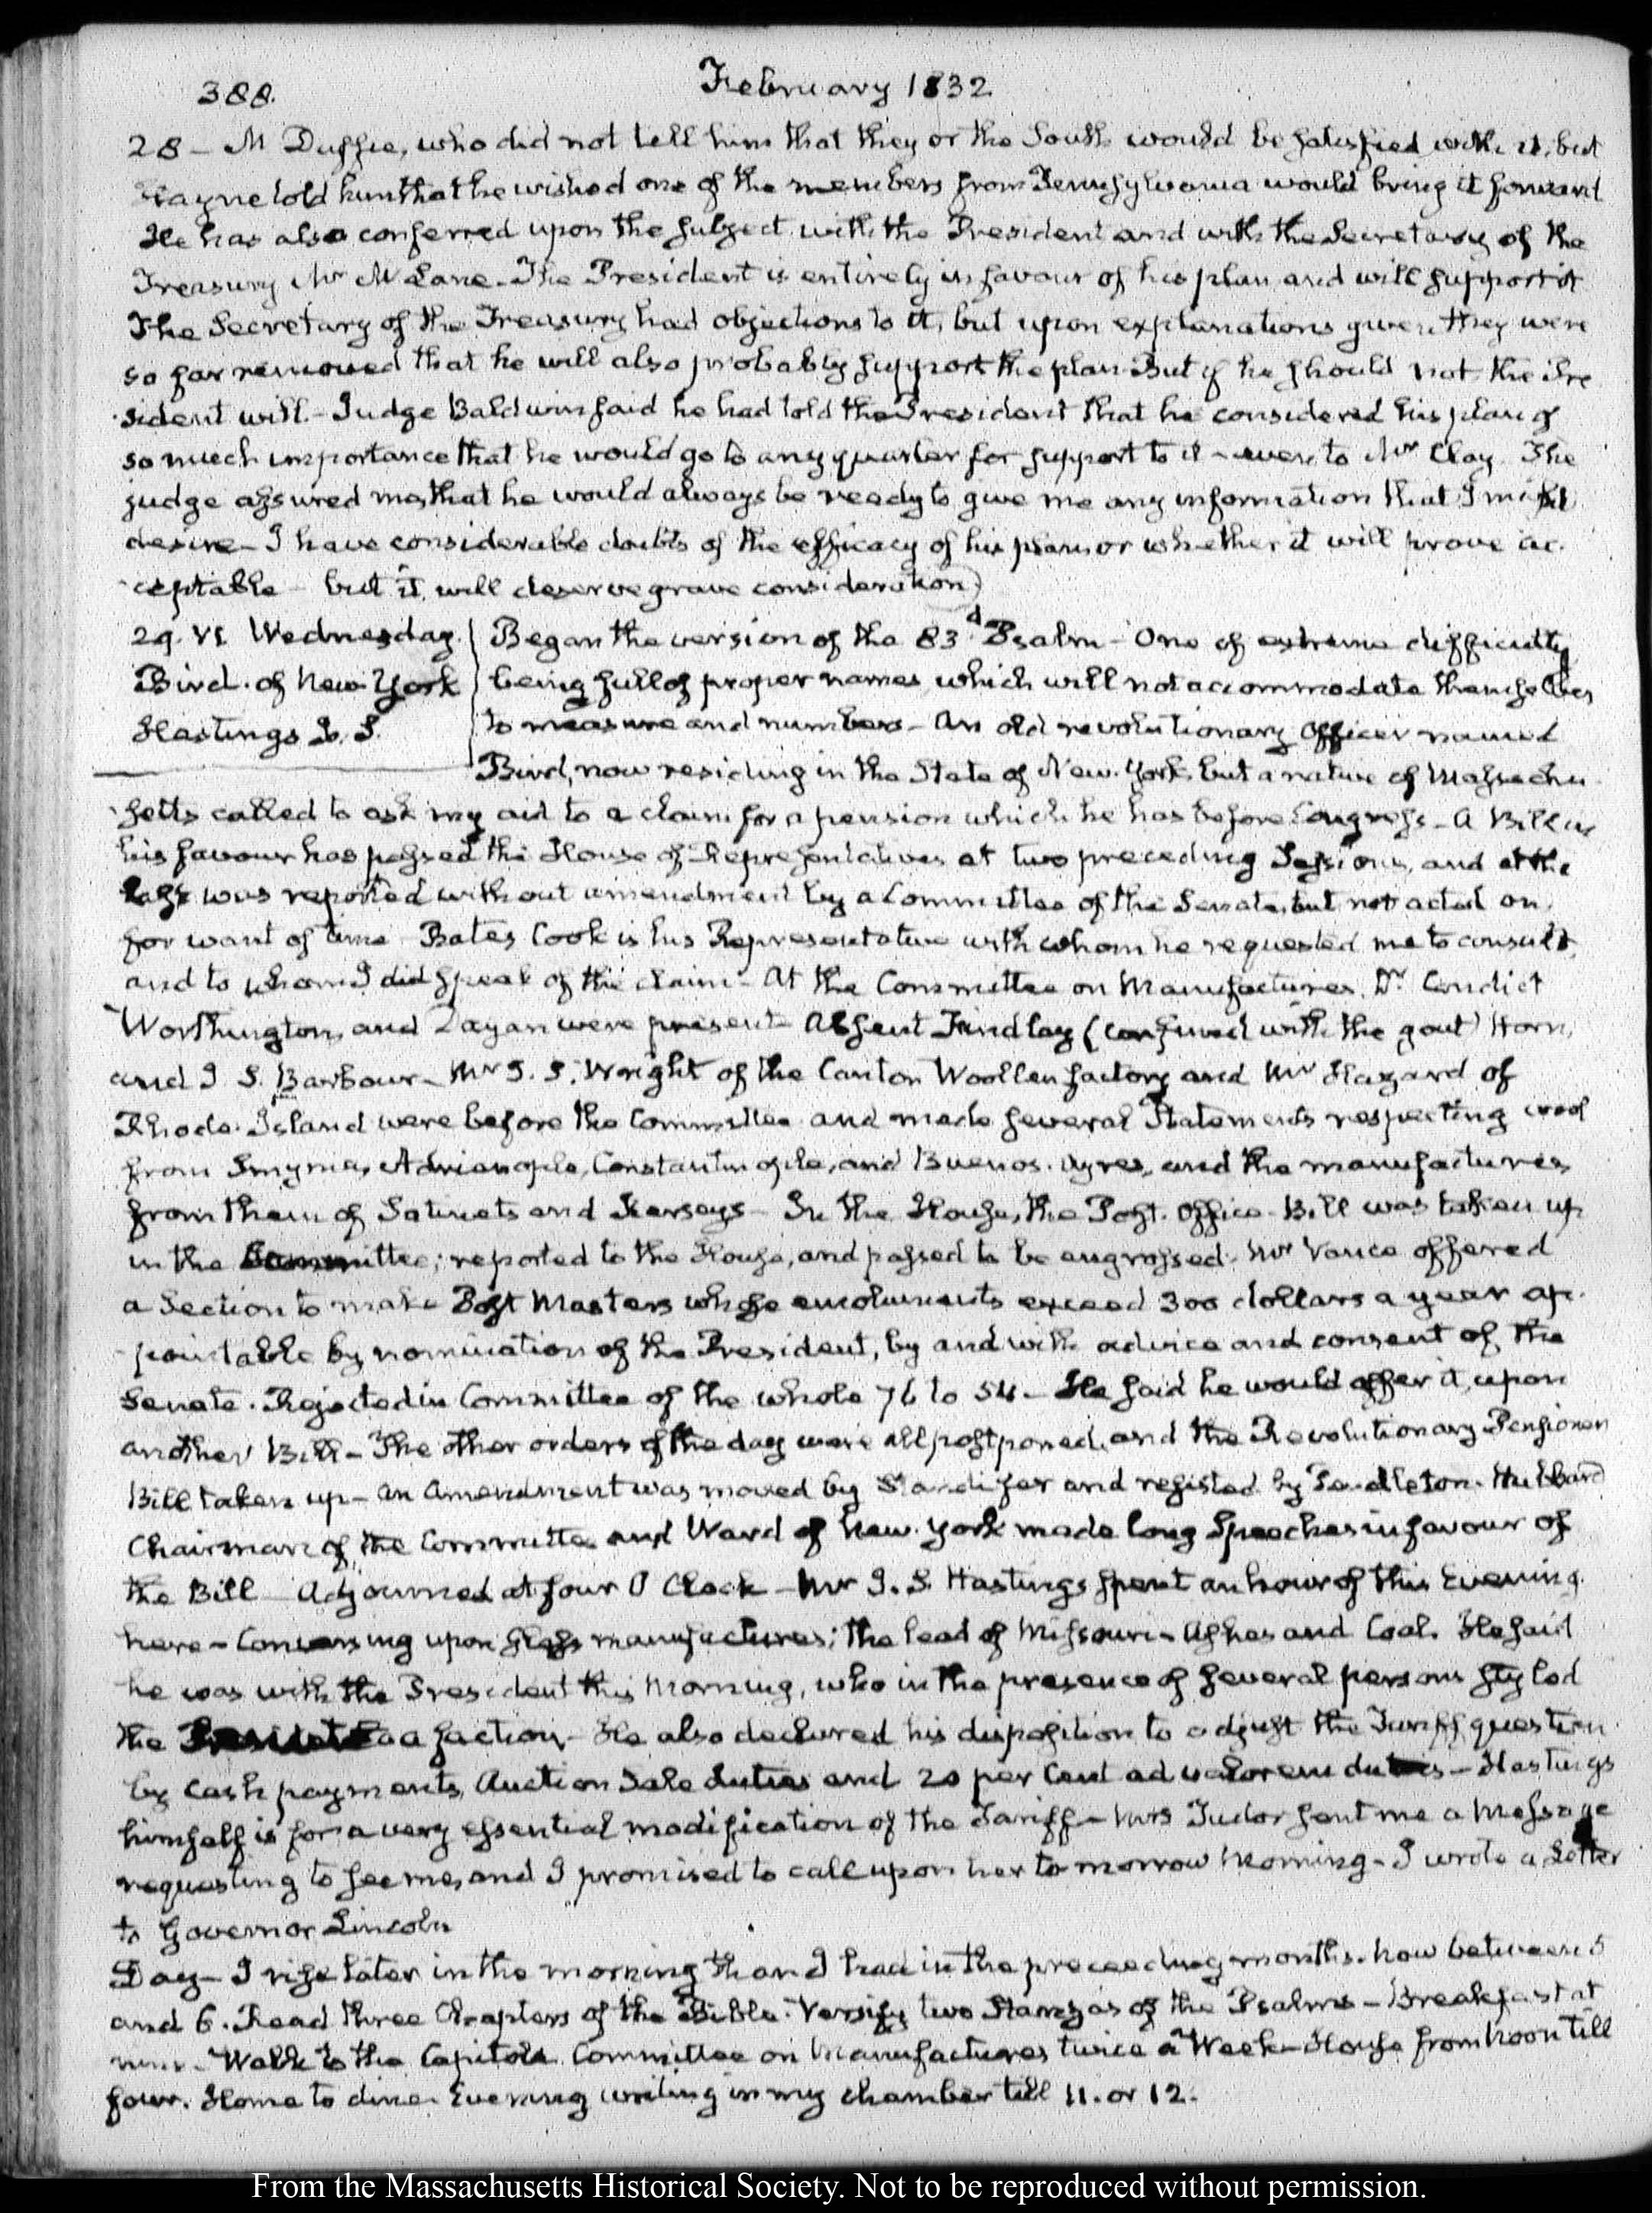 388.
February 1832
28 – Mc Duffie, who did not tell him that they or the South would be satisfied with it, but
Hayne told him that he wished one of the members from Pennsylvania would bring it forward
He has also conferred upon the subject with the President and with the Secretary of the
Treasury Mr McLane – The President is entirely in favour of his plan and will support it
The Secretary of the Treasury had objections to it, but upon explanations given, they were
so far removed that he will also probably support the plan But if he should not, the Pre
sident will. – Judge Baldwin said he had told the President that he considered his plan of
so much importance that he would go to any quarter for support to it – even to Mr Clay. The
judge assured me, that he would always be ready to give me any information that I might
desire – I have considerable doubts of the efficacy of his plan or whether it will prove ac-
ceptable – but it will deserve grave consideration)
29. VI. Wednesday.
Bird. of New-York
Hastings J. S.
Began the version of the 83d. Psalm – One of extreme difficulty
being full of proper names which will not accommodate themselves
to measure and numbers – An old revolutionary Officer named
Bird, now residing in the State of New-York, but a native of Massachu-
setts called to ask my aid to a claim for a pension which he has before Congress – A Bill in
his favour has passed the House of Representatives at two preceding Sessions, and at the
last was reported without amendment by a Committee of the Senate, but not acted on,
for want of time Bates Cook is his Representative with whom he requested me to consult,
and to whom I did speak of the claim – At the Committee on Manufactures, Dr. Condict
Worthington, and Dayan were present – Absent Findlay (confined with the gout) Horn,
and J. S. Barbour – Mr J. S. Wright of the Canton Woollen factory and Mr Hazard of
Rhode-Island were before the Committee and made several Statements respecting wool
from Smyrna, Adrianople, Constantinople, and Buenos-Ayres, and the manufactures,
from them of Satinets and Kerseys – In the House, the Post-Office-Bill was taken up
in the Committee; reported to the House, and passed to be engrossed. Mr Vance offered
a Section to make Post Masters whose emoluments exceed 300 dollars a year ap-
pointable by nomination of the President, by and with advice and consent of the
Senate. Rejected in Committee of the whole 76 to 54 – He said he would offer it, upon
another Bill – The other orders of the day were all postponed, and the Revolutionary Pensioner
Bill taken up – An Amendment was moved by Standifer and resisted by Pendleton. Hubbard
Chairman of the Committee and Ward of New-York made long Speeches in favour of
the Bill – Adjourned at four O Clock – Mr J. S. Hastings spent an hour of this Evening.
here – Conversing upon glass manufactures; the lead of Missouri – Ashes and Coal. He said
he was with the President this Morning, who in the presence of several persons styled
the a faction – He also declared his disposition to adjust the Tariff question
by Cash payments, Auction Sale duties and 20 per Cent ad valorem duties – Hastings
himself is for a very essential modification of the Tariff – Mrs Tudor sent me a Message
requesting to see me, and I promised to call upon her to morrow Morning – I wrote a Letter
to Governor Lincoln
Day – I rise later in the morning than I had in the preceeding months. now between 5
and 6. Read three Chapters of the Bible. Versify two Stanzas of the Psalms – Breakfast at
nine – Walk to the Capitol. Committee on Manufactures twice a Week – House from Noon till
four. Home to dine. Evening writing in my chamber till 11. or 12.
From the Massachusetts Historical Society. Not to be reproduced without permission.